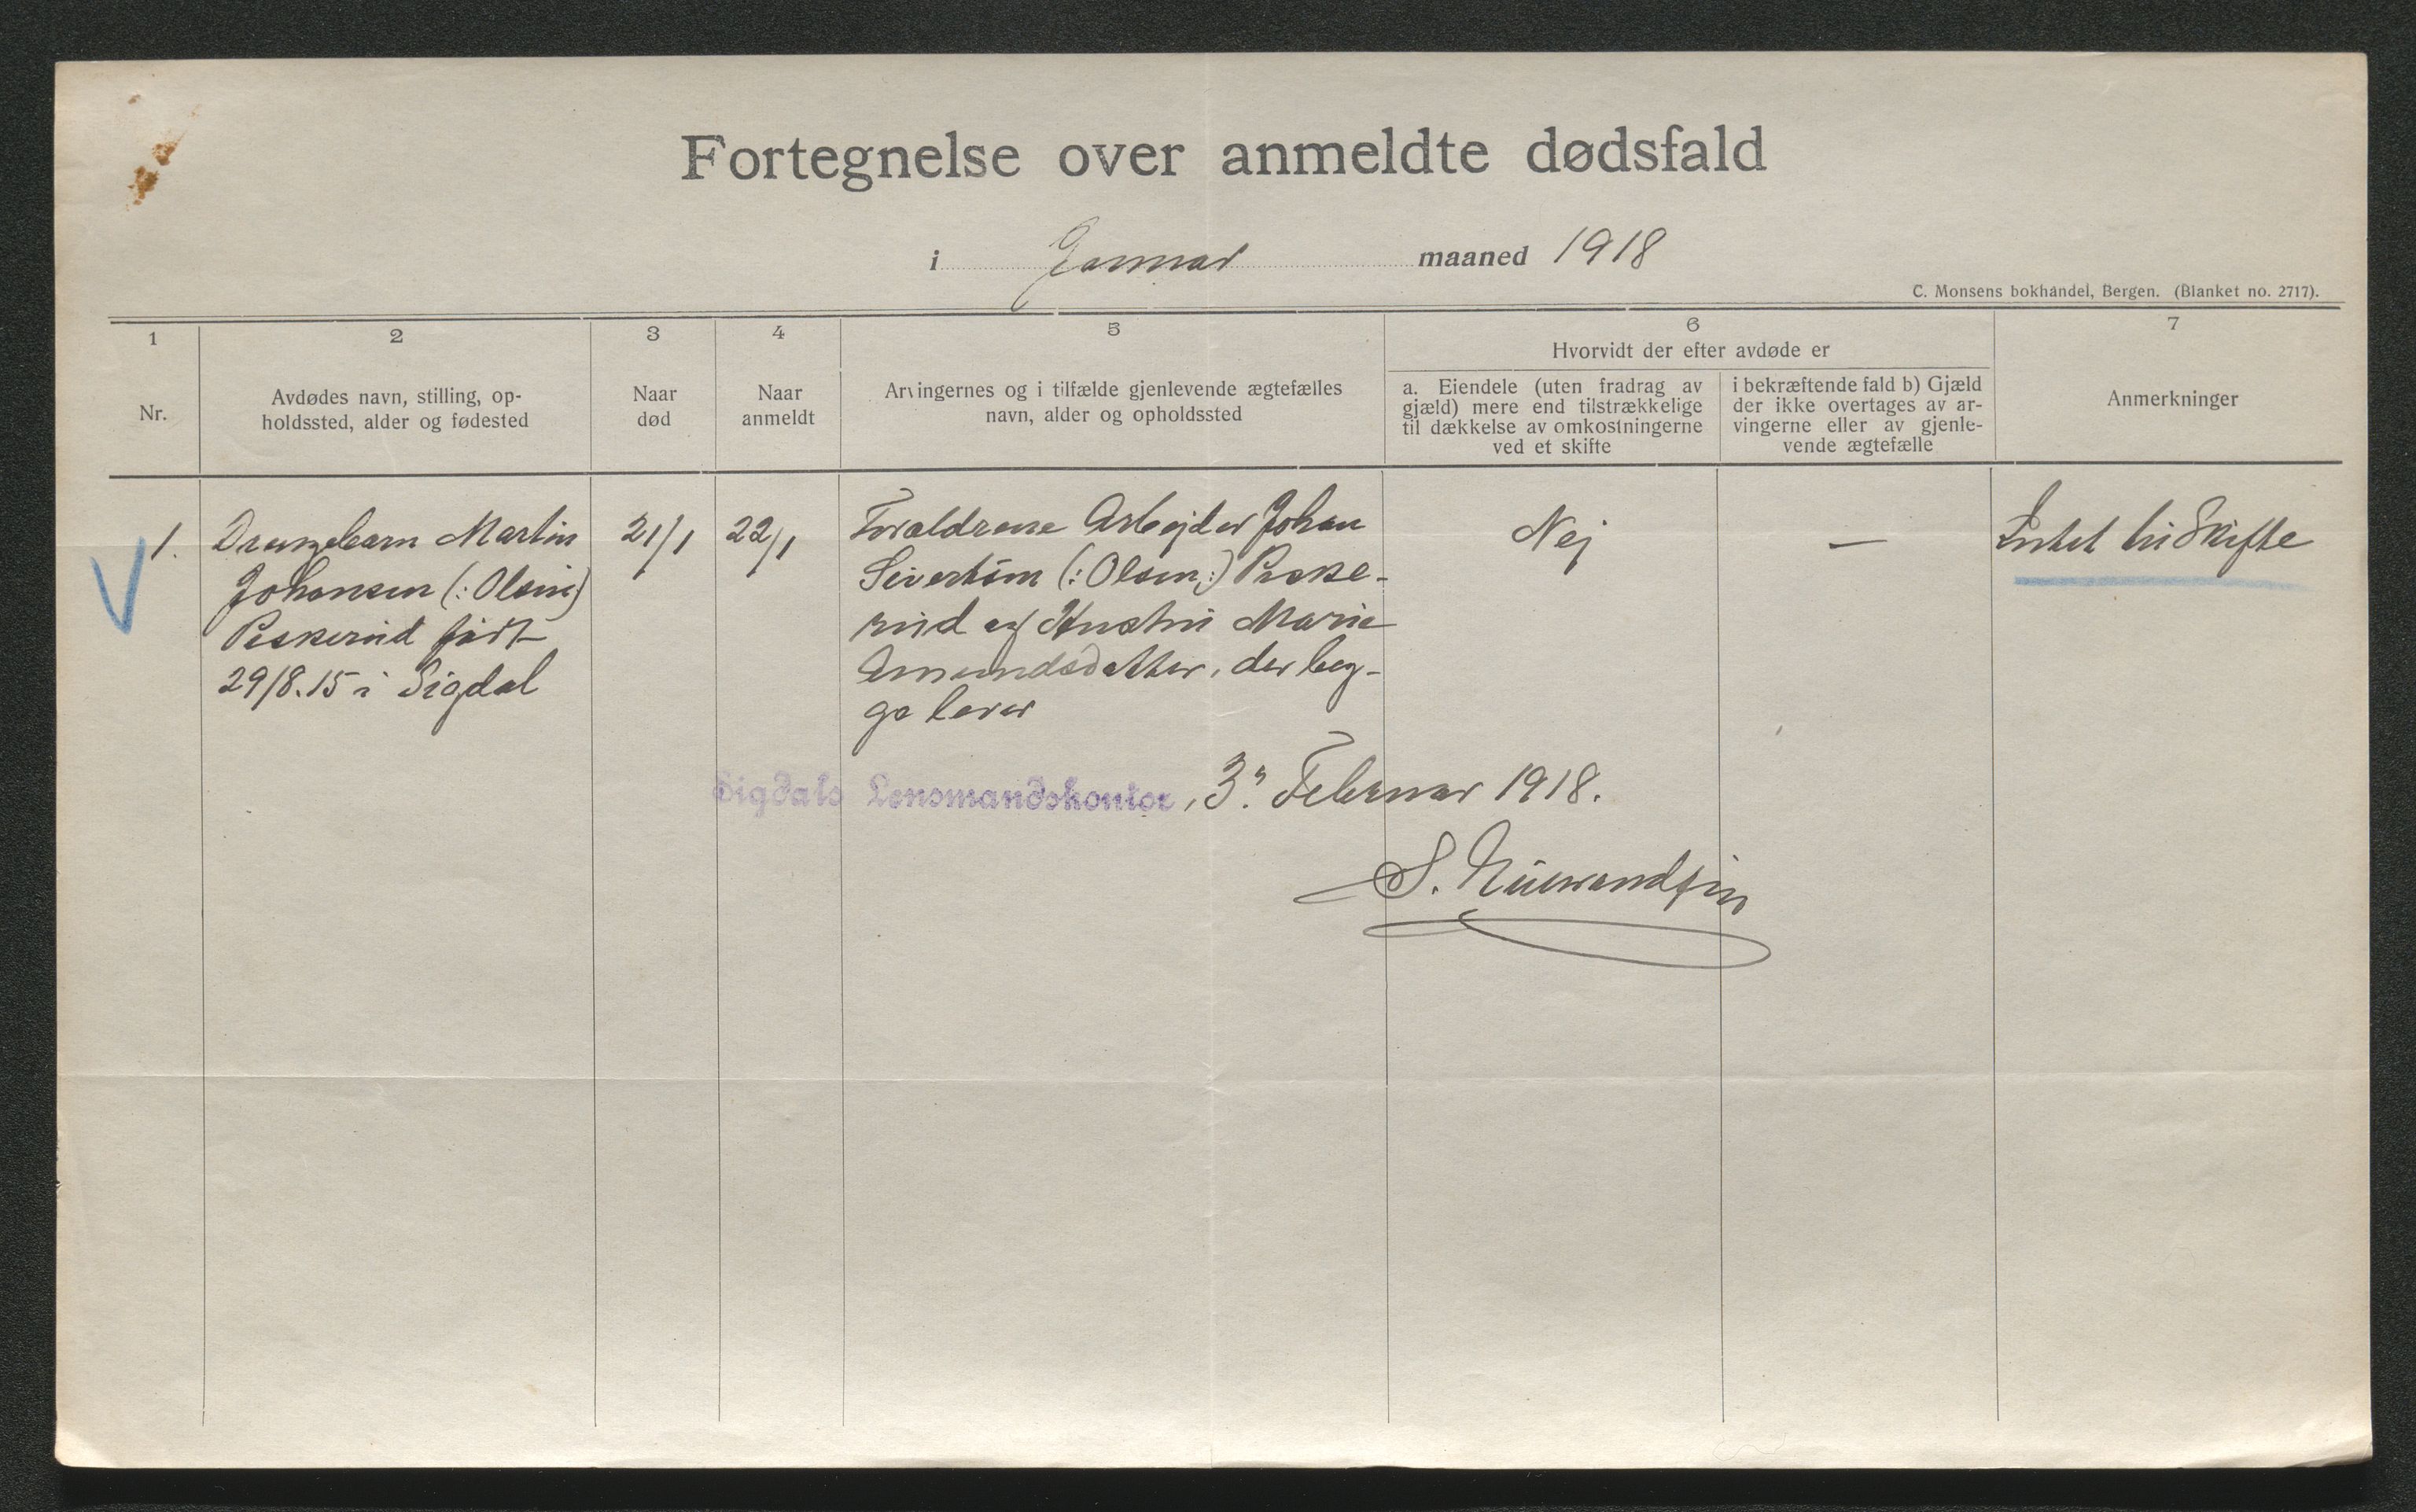 Fortegnelse over anmeldte dødsfald
i Januar maaned 1918
C. Monsens bokhandel, Bergen. (Blanket no. 2717).
1
Nr.
2
Avdødes navn, stilling, op-
holdssted, alder og fødested
3
Naar
død
4
Naar
anmeldt
5
Arvingernes og i tilfælde gjenlevende ægtefælles
navn, alder og opholdssted
6
Hvorvidt der efter avdøde er
a. Eiendele (uten fradrag av
gjæld) mere end tilstrækkelige
til dækkelse av omkostningerne
ved et skifte
i bekræftende fald b) Gjæld
der ikke overtages av ar-
vingerne eller av gjenle-
vende ægtefælle
7
Anmerkninger
1.
Drengebarn Martin
Johansen (: Olsen:)
Peskerud født
29/8.15 i Sigdal
21/1
22/1
Forældrene Arbejder Johan
Sivertsen (: Olsen :) Peske-
rud og Hustru Marie
Amundsdatter, der beg-
ge lever
Nej
—
Intet til Skifte
Sigdals Lensmandskontor, 3. Februar 1918.
S.